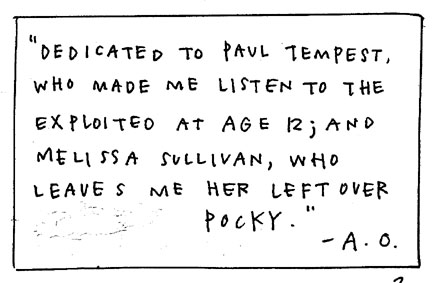 "DEDICATED TO PAUL TEMPEST,
WHO MADE ME LISTEN TO THE
EXPLOITED AT AGE 12; AND
MELISSA SULLIVAN, WHO
LEAVES ME HER LEFT OVER
POCKY."
- A. O.